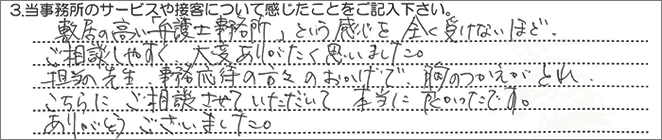 3.当事務所のサービスや接客について感じたことをご記入下さい。
敷居の高い「弁護士事務所」という感じを全く負けないほど、
ご相談しやすく大変ありがたく思いました。
担当の先生、事務応待の方々のおかげで胸のつかえがとれ、
こちらにご相談させていただいて本当に良かったです。
ありがとうございました。